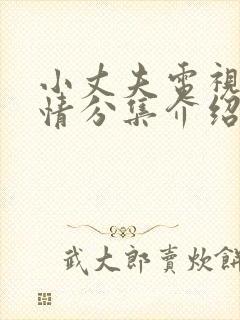 小丈夫電視
情分集介紹
武大郎賣炊餅